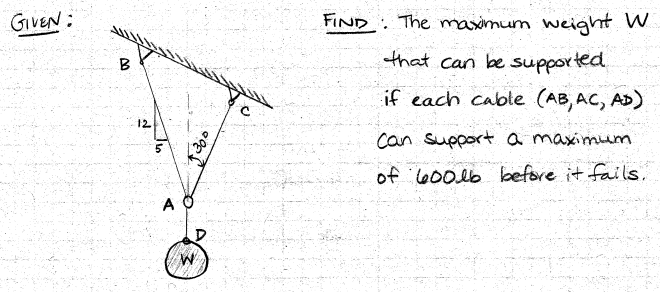 GIVEN:
FIND: The maximum weight W
that can be supported
if each cable (AB, AC, AD)
can support a maximum
of 600lb before it fails.
B
C
12
5
30°
A
D
W